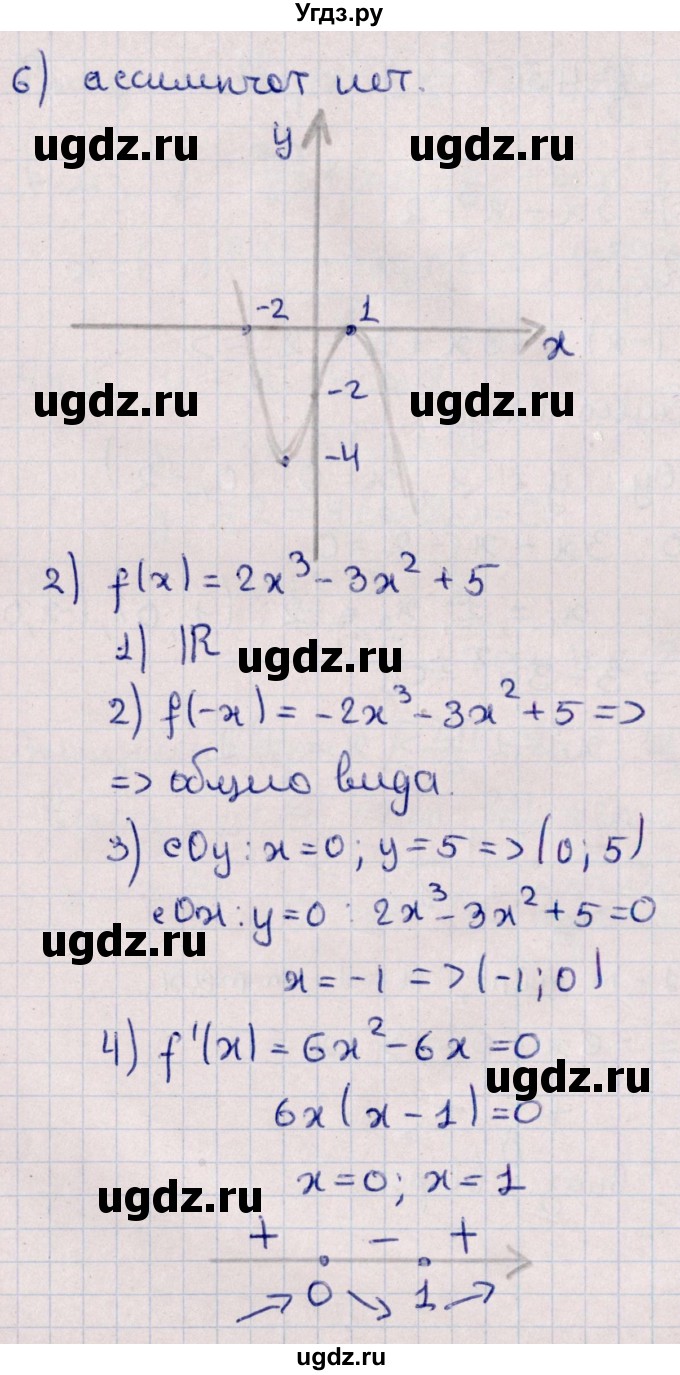 Угдз.ру
6) ассимптот нет.
ugdz.ru ugdz.ru
y
-2 1
x
ugdz.ru ugdz.ru
-2
-4
2) f(x) = 2x³ - 3x² + 5
1) ℝ
ugdz.ru
2) f(-x) = -2x³ - 3x² + 5 =>
=> общего вида.
3) с Oy: x = 0; y = 5 => (0; 5)
с Ox: y = 0: 2x³ - 3x² + 5 = 0
ugdz.ru
x = -1 => (-1; 0)
4) f'(x) = 6x² - 6x = 0
ugdz.ru
6x(x - 1) = 0
x = 0; x = 1
ugdz.ru
+ - +
0 1
ugdz.ru